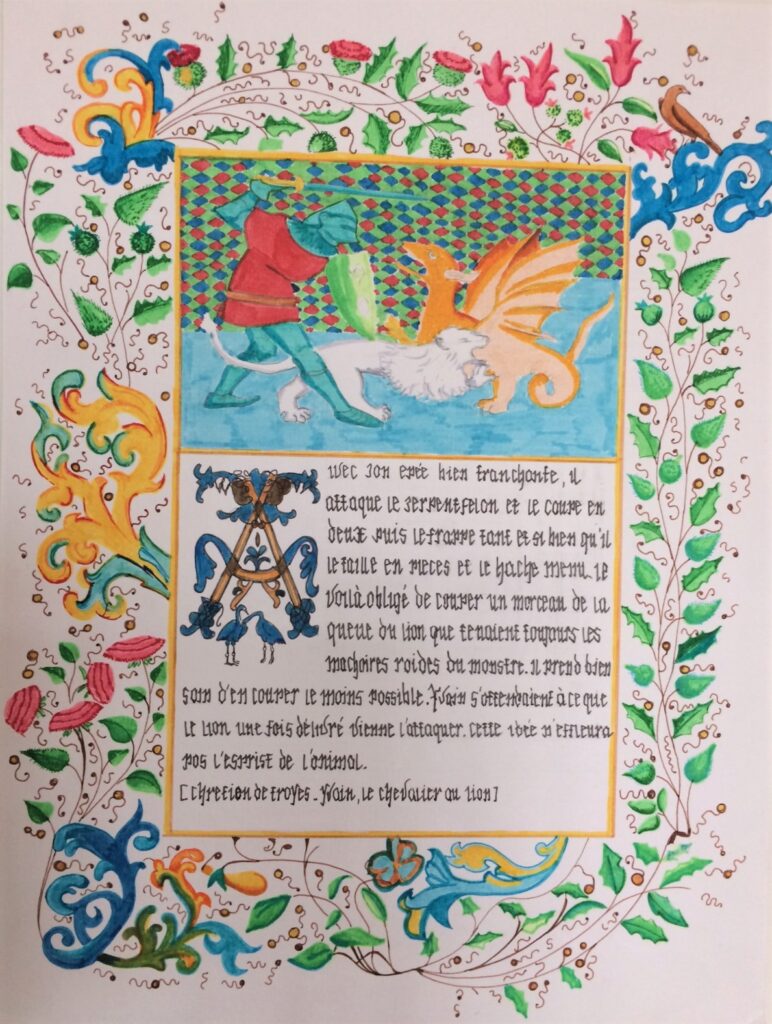 Avec son épée bien tranchante, il
attaque le serpent felon et le coupe en
deux puis le frappe tant et si bien qu'il
le taille en pieces et le hache menu. Le
voilà obligé de couper un morceau de la
queue du lion que tenaient toujours les
machoires roides du monstre. Il prend bien
soin d'en couper le moins possible. Yvain s'attendait à ce que
le lion une fois délivré vienne l'attaquer. Cette idée n'effleura
pas l'esprist de l'animal.
[Chretion de troyes - Yvain, le chevalier au lion]